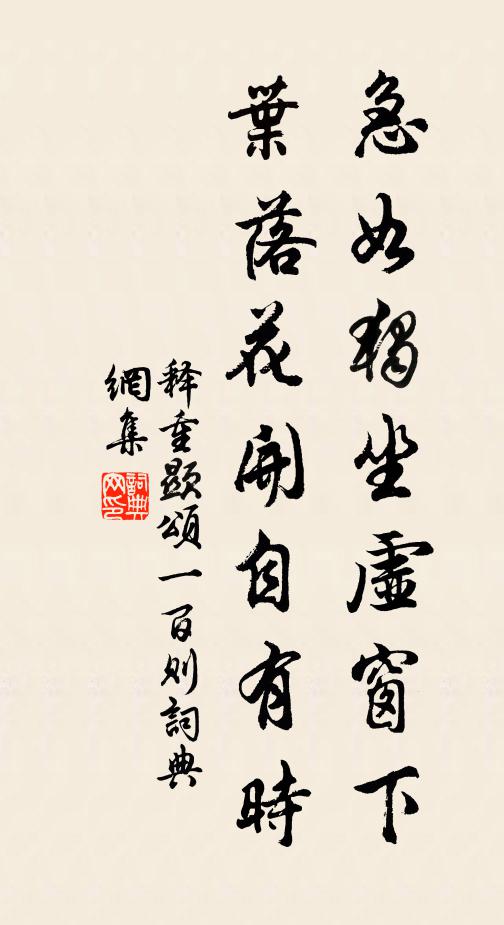 急如獨坐虛窗下
葉落花開自有時
释重顯頌一百则詞典
網集
詞典
网印